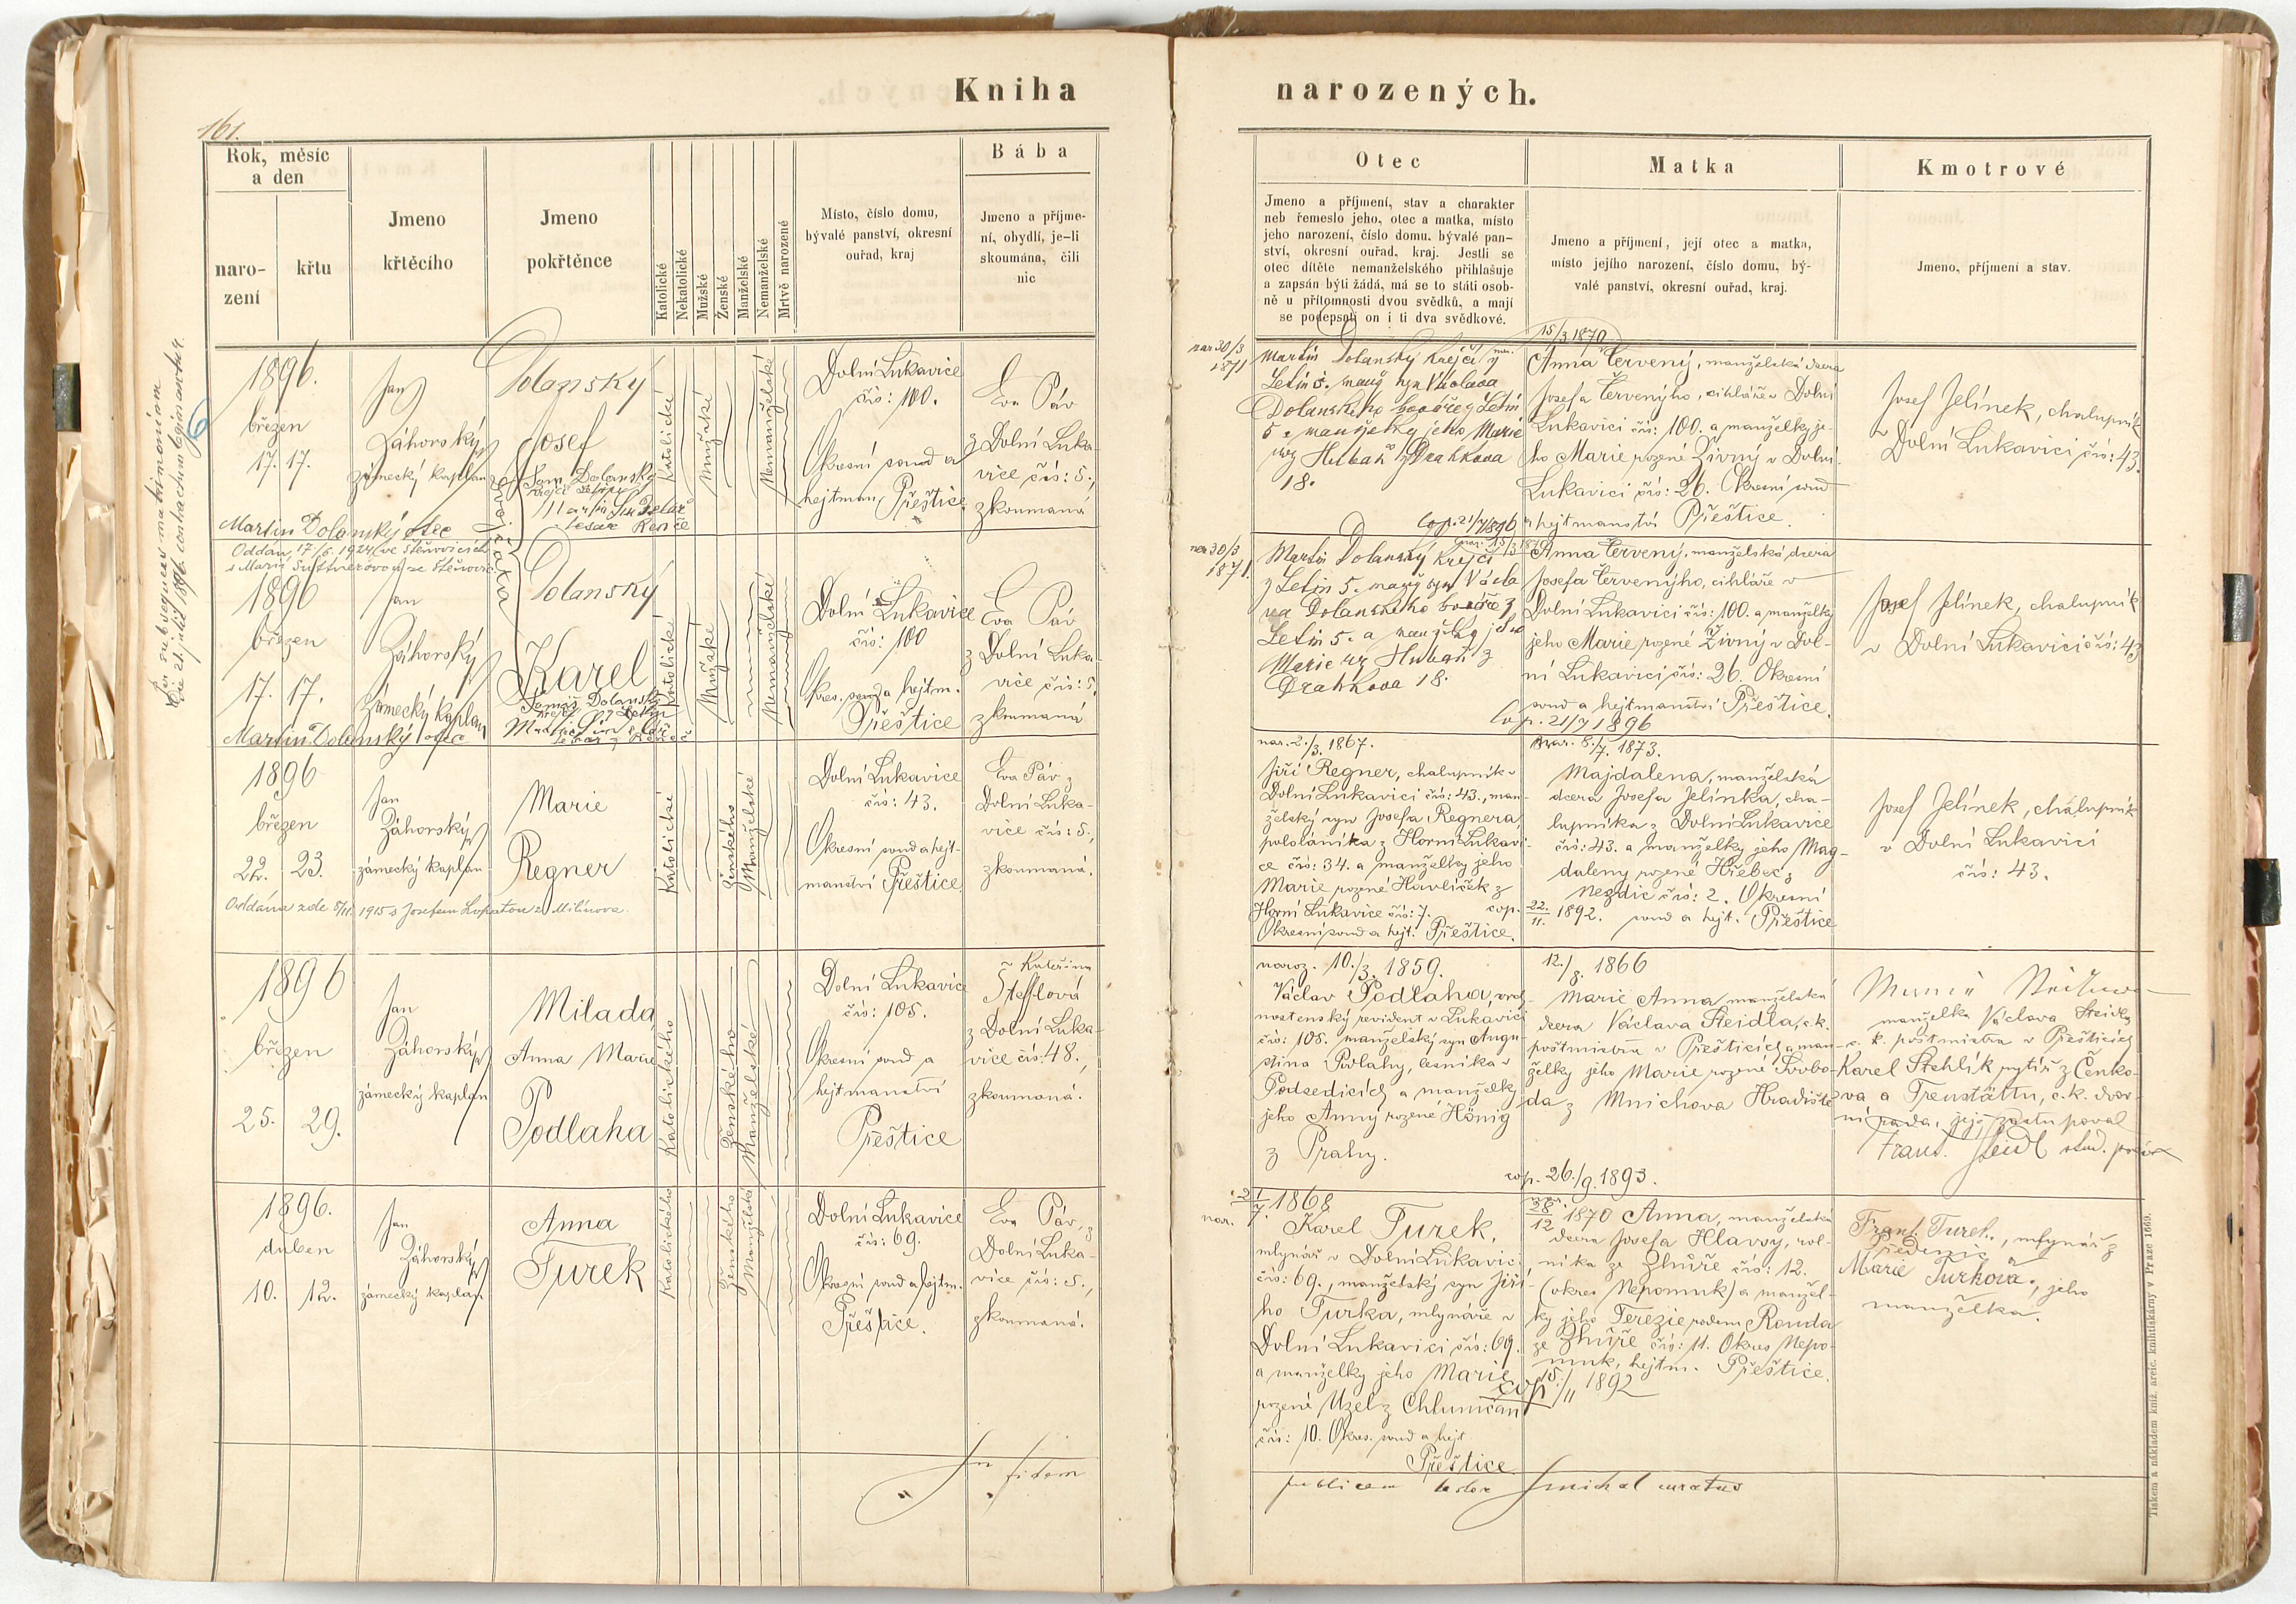 Kniha
narozených.
161.
Rok, měsíc
a den
naro-
zení
křtu
Jmeno
křtěcího
Jmeno
pokřtěnce
Katolické
Nekatolické
Mužské
Ženské
Manželské
Nemanželské
Mrtvě narozené
Místo, číslo domu,
bývalé panství, okresní
ouřad, kraj
Bába
Jmeno a příjme-
ní, obydlí, je-li
skoumána, čili
nic
Otec
Jmeno a příjmení, stav a charakter
neb řemeslo jeho, otec a matka, místo
jeho narození, číslo domu, bývalé pan-
ství, okresní ouřad, kraj. Jestli se
otec dítěte nemanželského přihlašuje
a zapsán býti žádá, má se to státi osob-
ně u přítomnosti dvou svědků, a mají
se podepsati on i ti dva svědkové.
Matka
Jmeno a příjmení, její otec a matka,
místo jejího narození, číslo domu, bý-
valé panství, okresní ouřad, kraj.
Kmotrové
Jmeno, příjmení a stav.
Per subsequens matrimonium
die 21. julii 1896 contractum legimantur.
1896.
březen
17. 17.
Jan
Záhorský
zámecký kaplan
Dolanský
Josef
dvojčáka
Katolické
Mužské
Nemanželské
Dolní Lukavice
čís: 100.
Okresní soud a
hejtman. Přeštice
Eva Páv
z Dolní Luka-
vice čís: 5.,
zkoumaná
Martin Dolanský otec
Oddán 17/6. 1924 ve Štěnovicích
s Marií
nar 30/3
1871
Martin Dolanský krejčí z
Letin 5. manž syn Václava
Dolanského z Letin
5. a manželky jeho Marie
roz Hubač z Drahkova
18.
cop. 21/7 1896
15/3 1870
Anna Červený, manželská dcera
Josefa Červenýho, cihláře v Dolní
Lukavici čís: 100. a manželky je-
ho Marie rozené Živný v Dolní
Lukavici čís: 26. Okresní soud
a hejtmanství Přeštice.
Josef Jelínek, chalupník
v Dolní Lukavici čís: 43.
1896
březen
17. 17.
Jan
Záhorský
zámecký kaplan
Dolanský
Karel
Tomáš Dolanský
Katolické
Mužské
Nemanželské
Dolní Lukavice
čís: 100
Okres. soud a hejtm.
Přeštice
Eva Páv
z Dolní Luka-
vice čís: 5.
zkoumaná
Martin Dolanský otec
nar 30/3
1871.
Martin Dolanský krejčí
z Letin 5. manž syn Václa
va Dolanského z
Letin 5. a manželky jeho
Marie roz Hubač z
Drahkova 18.
cop. 21/7 1896
Anna Červený, manželská dcera
Josefa Červenýho, cihláře v
Dolní Lukavici čís: 100. a manželky
jeho Marie rozené Živný v Dol-
ní Lukavici čís: 26. Okresní
soud a hejtmanství Přeštice.
Josef Jelínek, chalupník
v Dolní Lukavici čís: 43
1896
březen
22. 23.
Jan
Záhorský
zámecký kaplan
Marie
Regner
Katolické
Ženského
Manželské
Dolní Lukavice
čís: 43.
Okresní soud a hejt-
manství Přeštice
Eva Páv z
Dolní Luka-
vice čís: 5.,
zkoumaná.
Oddána zde 8/11. 1915 s Josefem Lopatou z Milínova.
nar. 2./3. 1867.
Jiří Regner, chalupník v
Dolní Lukavici čís: 43., man-
želský syn Josefa Regnera,
pololáníka z Horní Lukavi-
ce čís: 34. a manželky jeho
Marie rozené Havlíček z
Horní Lukavice čís: 7.
Okresní soud a hejt. Přeštice.
nar. 8./7. 1873.
Majdalena, manželská
dcera Josefa Jelínka, cha-
lupníka z Dolní Lukavice
čís: 43. a manželky jeho Mag-
daleny rozené Hřebec z
Nezdic čís: 2. Okresní
cop. 22./11. 1892. soud a hejt. Přeštice
Josef Jelínek, chalupník
v Dolní Lukavici
čís: 43.
1896
březen
25. 29.
Jan
Záhorský
zámecký kaplan
Milada
Anna Marie
Podlaha
Katolického
Ženského
Manželské
Dolní Lukavice
čís: 105.
Okresní soud a
hejtmanství
Přeštice
Kateřina
Štefflová
z Dolní Luka-
vice čís: 48.,
zkoumaná.
naroz. 10./3. 1859.
Václav Podlaha, vrch-
nostenský revident v Lukavici
čís: 105. manželský syn Augu-
stina Podlahy, lesníka v
Podsedicích a manželky
jeho Anny rozené Hönig
z Prahy.
cop. 26./9. 1893.
12./8. 1866
Marie Anna, manželská
dcera Václava Steidla, c.k.
poštmistra v Přešticích a man-
želky jeho Marie rozené Svobo-
da z Mnichova Hradiště
manželka Václava Steidla
c. k. poštmistra v Přešticích
Karel Stehlík rytíř z Čenko-
va a Treustättu, c.k. dvor-
ní rada, jejž zastupoval
Frant. Steidl stud. práv
1896.
duben
10. 12.
Jan
Záhorský
zámecký kaplan
Anna
Turek
Katolického
Ženského
Manželské
Dolní Lukavice
čís: 69.
Okresní soud a hejtm.
Přeštice.
Eva Páv, z
Dolní Luka-
vice čís: 5.,
zkoumaná.
nar. 21/7. 1868
Karel Turek,
mlynář v Dolní Lukavici
čís: 69., manželský syn Jiří-
ho Turka, mlynáře v
Dolní Lukavici čís: 69.
a manželky jeho Marie
rozené Uzel z Chlumčan
čís: 10. Okres. soud a hejt
Přeštice.
nar. 28/12 1870 Anna, manželská
dcera Josefa Hlavsy, rol-
níka ze Zhůře čís: 12.
(okres Nepomuk) a manžel-
ky jeho Terezie rodem Rouda
ze Zhůře čís: 11. Okres Nepo-
muk, hejtm. Přeštice.
cop 15./11 1892
Frant. Turek, mlynář z
Marie Turková, jeho
manželka.
In fidem
publicam testor Smichal curatus
Tiskem a nákladem kníž. arcib. knihtiskárny v Praze 1669.